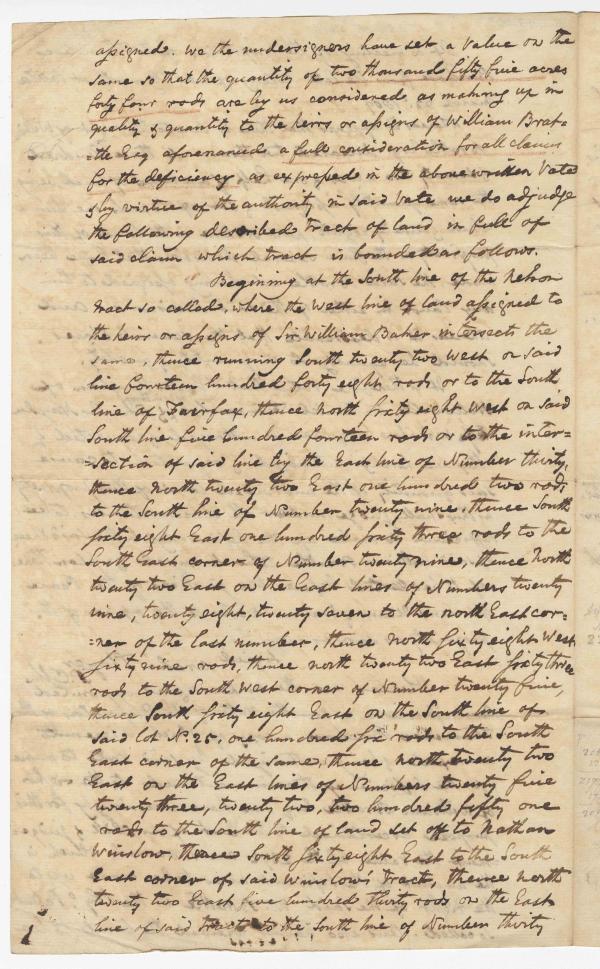 assigned. We the undersigners have set a Value on the
same so that the quantity of two thousand fifty five acres
forty four rods are by us considered as making up in
quality & quantity to the heirs or assigns of William Brat=
=tle Esq aforenamed a full consideration for all claims
for the deficiency, as expressed in the above written Vote
& by virtue of the authority in said Vote we do adjudge
the following described tract of land in full of
said claim which tract is bounded as follows.
Beginning at the South line of the Nelson
tract so called, where the West line of land assigned to
the heirs or assigns of Sir William Baker intersects the
same, thence running South twenty two West on said
line fourteen hundred forty eight rods or to the South
line of Fairfax, thence North sixty eight West on said
South line five hundred fourteen rods or to the inter=
=section of said line by the East line of Number thirty,
thence North twenty two East one hundred two rods
to the South line of Number twenty nine, thence South
sixty eight East one hundred sixty three rods to the
South East corner of Number twenty nine, thence North
twenty two East on the East lines of Numbers twenty
nine, twenty eight, twenty seven to the north East cor=
=ner of the last number, thence north sixty eight West
sixty nine rods, thence north twenty two East sixty three
rods to the South West corner of Number twenty five,
thence South sixty eight East on the South line of
said lot No. 25, one hundred six rods to the South
East corner of the same, thence north twenty two
East on the East lines of Numbers twenty five
twenty three, twenty two, two hundred fifty one
rods to the South line of land set off to Nathan
Winslow, thence South sixty eight East to the South
East corner of said Winslow's tract, thence north
twenty two East five hundred thirty rods on the East
line of said tract to the South line of Number thirty